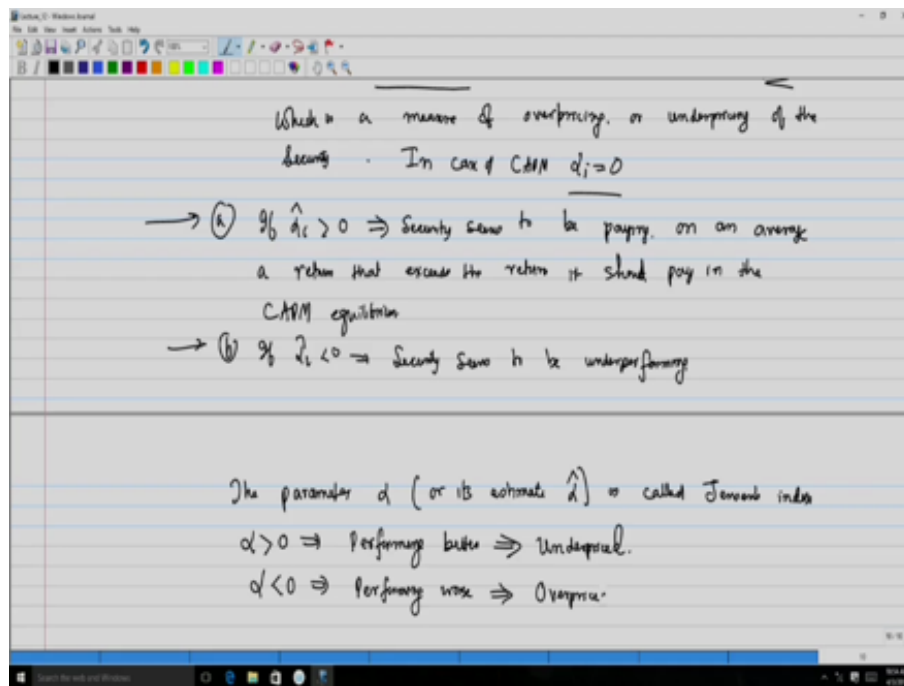 Lecture_12 - Windows Journal
File Edit View Insert Actions Tools Help
B I
Which is a measure of overpricing. or underpricing of the
Security. In case of CAPM αᵢ = 0
→ (a) If α̂ᵢ > 0 ⇒ Security seems to be paying. on an average
a return that exceeds the return it should pay in the
CAPM equilibrium
→ (b) If α̂ᵢ < 0 ⇒ Security seems to be underperforming
The parameter α (or its estimate α̂) is called Jensen's index
α > 0 ⇒ Performing better ⇒ Underpriced.
α < 0 ⇒ Performing worse ⇒ Overprice.
Search the web and Windows